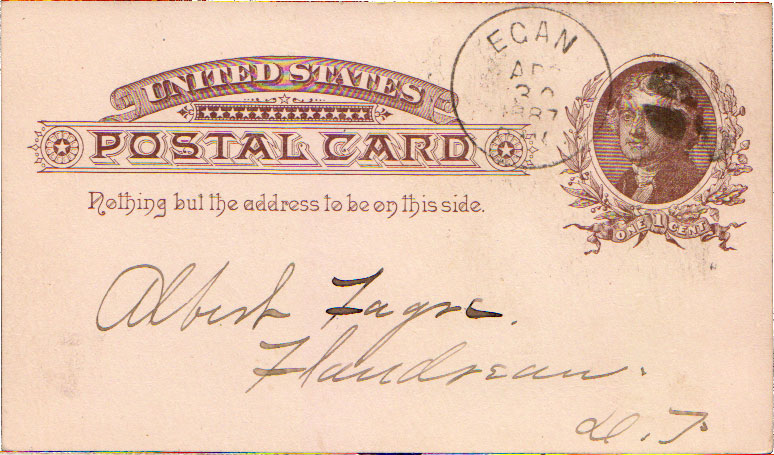 UNITED STATES
POSTAL CARD
Nothing but the address to be on this side.
EGAN
30
ONE 1 CENT
Albert
Flandreau.
D. T.